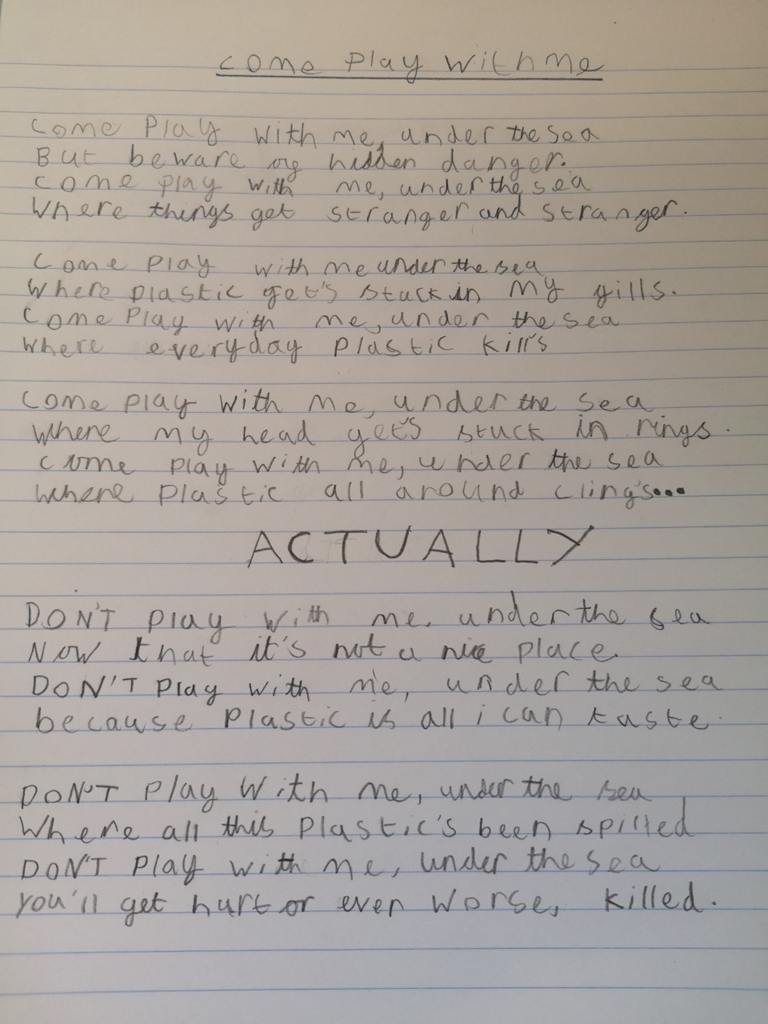 come play with me
Come Play with me, under the sea
But beware of hidden danger.
come play with me, under the sea
Where things get stranger and stranger.
Come play with me under the sea
Where plastic get's stuck in my gills.
Come Play with me, under the sea
Where everyday plastic kill's
Come play with me, under the sea
Where my head get's stuck in rings.
come play with me, under the sea
where plastic all around cling's...
ACTUALLY
DON'T play with me. under the sea
Now that it's not a nice place.
DON'T play with me, under the sea
because plastic is all i can taste.
DON'T play with me, under the sea
Where all this plastic's been spilled
DON'T play with me, under the sea
You'll get hurt or even worse, killed.